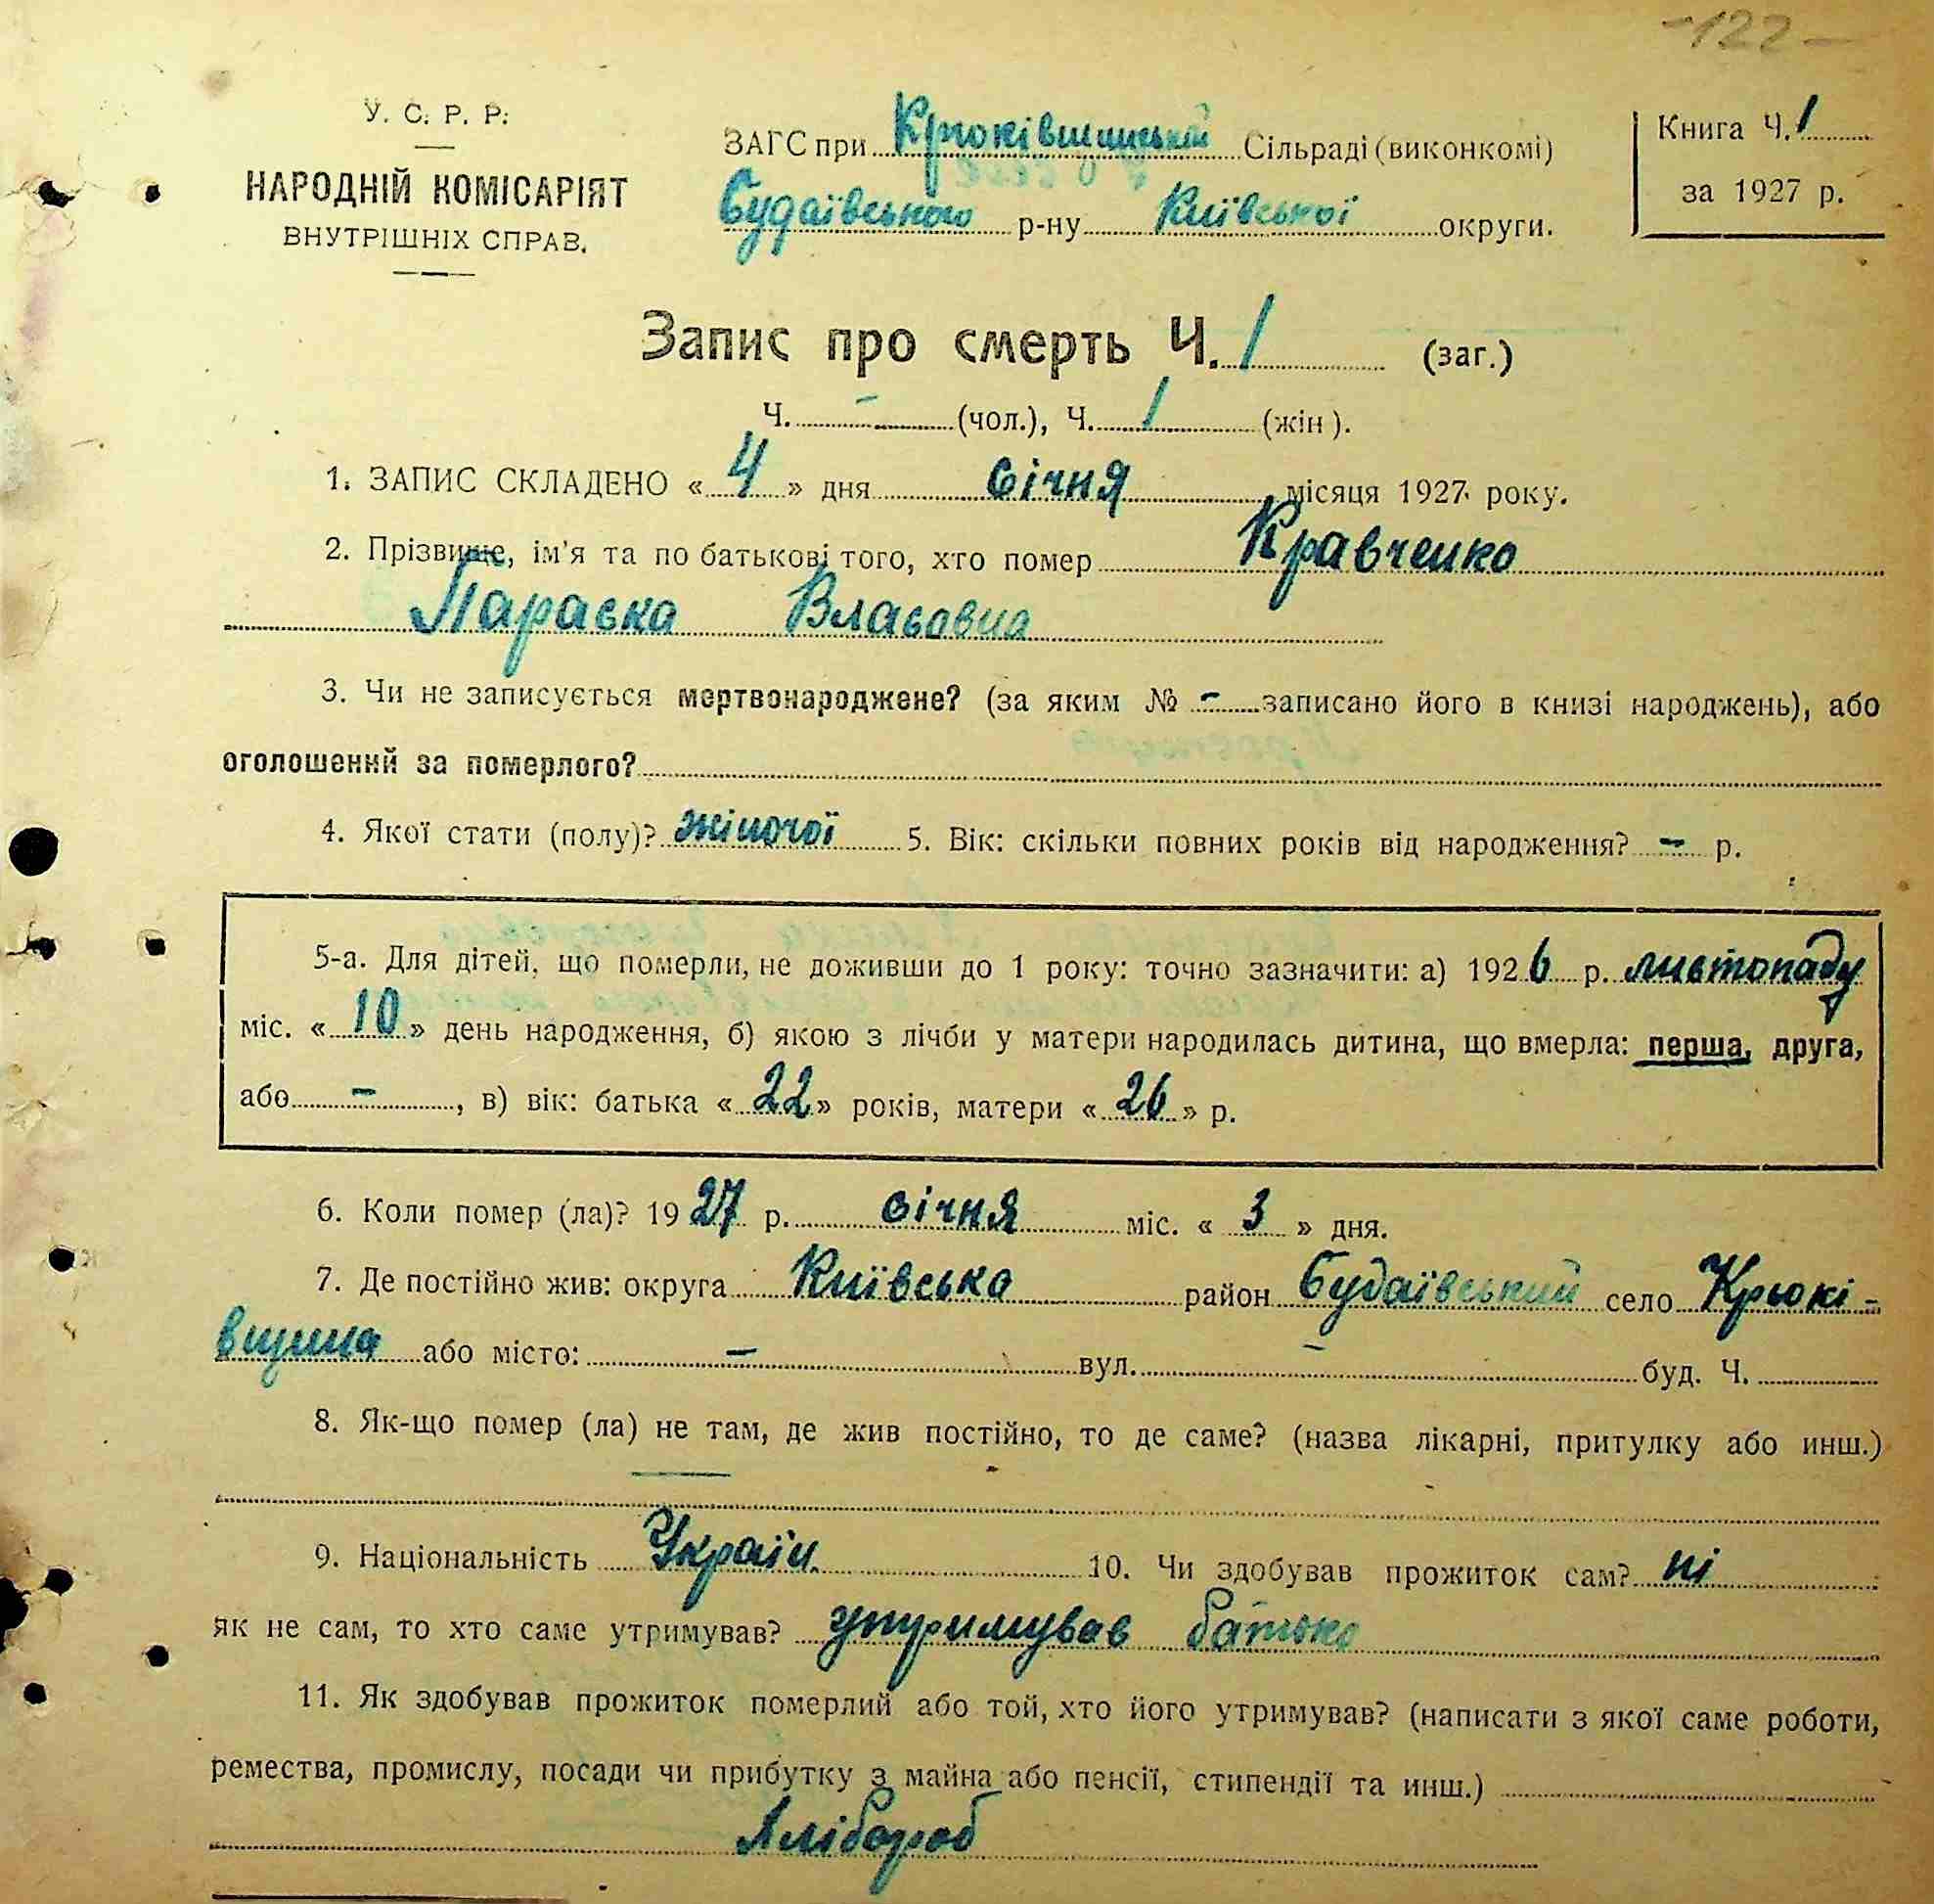 -122-
У. С. Р. Р.
НАРОДНІЙ КОМІСАРІЯТ
ВНУТРІШНІХ СПРАВ.
ЗАГС при Крюківщинській Сільраді (виконкомі)
Будаївського р-ну Київської округи.
Книга Ч. 1
за 1927 р.
Запис про смерть Ч. 1 (заг.)
Ч. - (чол.), Ч. 1 (жін).
1. ЗАПИС СКЛАДЕНО « 4 » дня січня місяця 1927 року.
2. Прізвище, ім'я та по батькові того, хто помер Кравченко
Параска Власовна
3. Чи не записується мертвонароджене? (за яким № - записано його в книзі народжень), або
оголошений за померлого?
4. Якої стати (полу)? жіночої 5. Вік: скільки повних років від народження? - р.
5-а. Для дітей, що померли, не доживши до 1 року: точно зазначити: а) 1926 р. листопаду
міс. « 10 » день народження, б) якою з лічби у матери народилась дитина, що вмерла: перша, друга,
або - , в) вік: батька « 22 » років, матери « 26 » р.
6. Коли помер (ла)? 1927 р. січня міс. « 3 » дня.
7. Де постійно жив: округа Київська район Будаївський село Крюкі-
вщина або місто: - вул. - буд. Ч.
8. Як-що помер (ла) не там, де жив постійно, то де саме? (назва лікарні, притулку або инш.)
9. Національність Україн. 10. Чи здобував прожиток сам? ні
як не сам, то хто саме утримував? утримував батько
11. Як здобував прожиток померлий або той, хто його утримував? (написати з якої саме роботи,
ремества, промислу, посади чи прибутку з майна або пенсії, стипендії та инш.)
Хлібороб